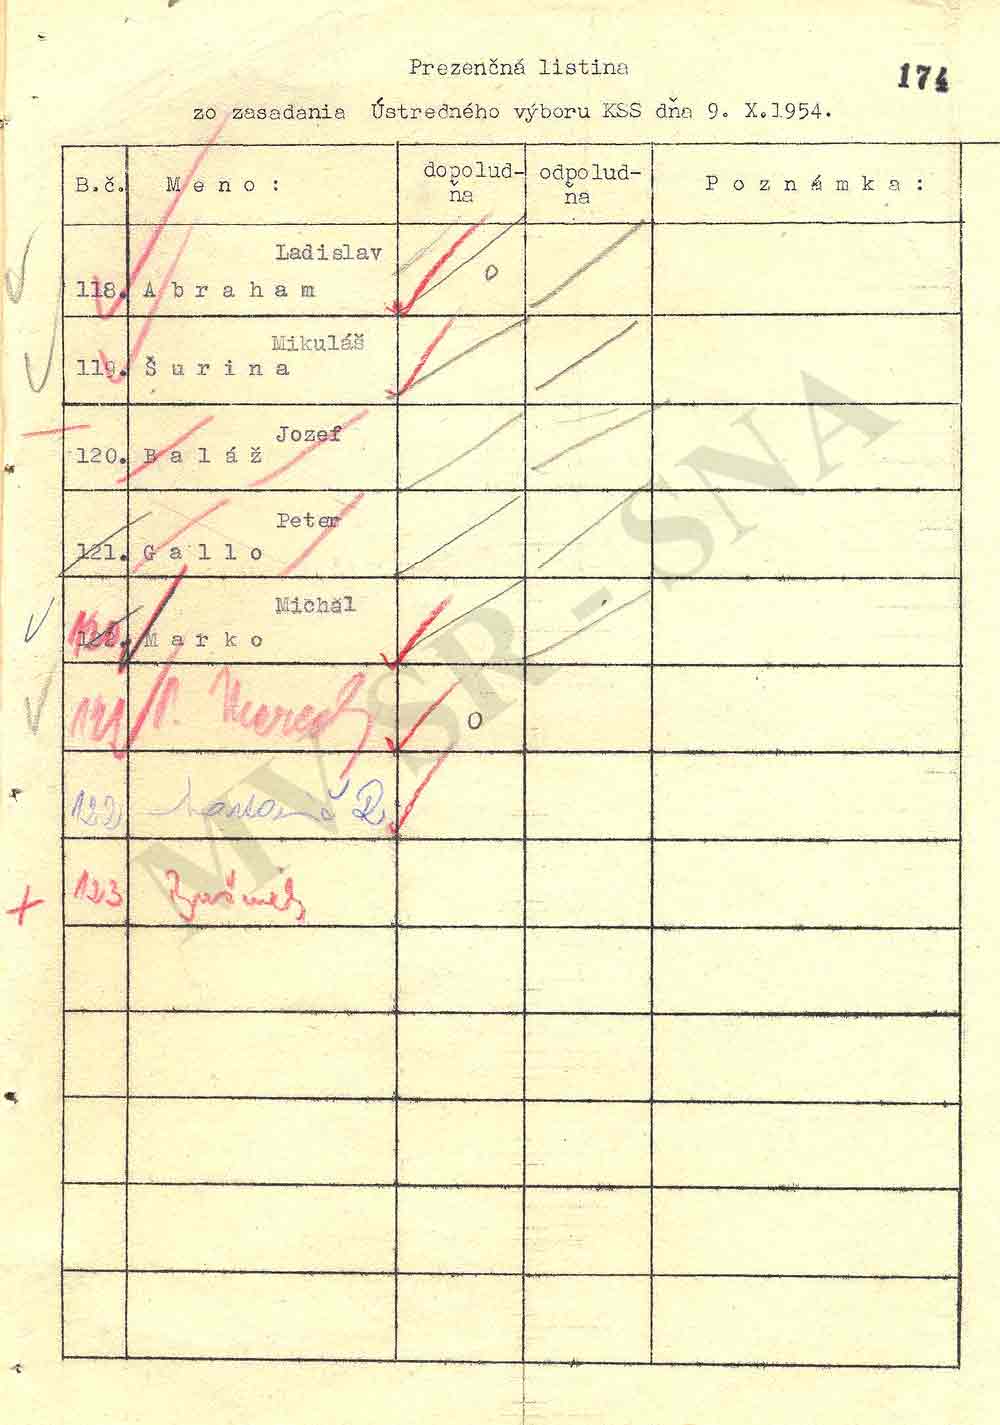 Prezenčná listina
174
zo zasadania Ústredného výboru KSS dňa 9. X.1954.
B.č. Meno: dopolud-ňa odpolud-ňa Poznámka:
Ladislav
118. Abraham
O
Mikuláš
119. Šurina
Jozef
120. Baláž
Peter
121. Gallo
Michal
122. Marko
121
O
122
123
MV SR - SNA